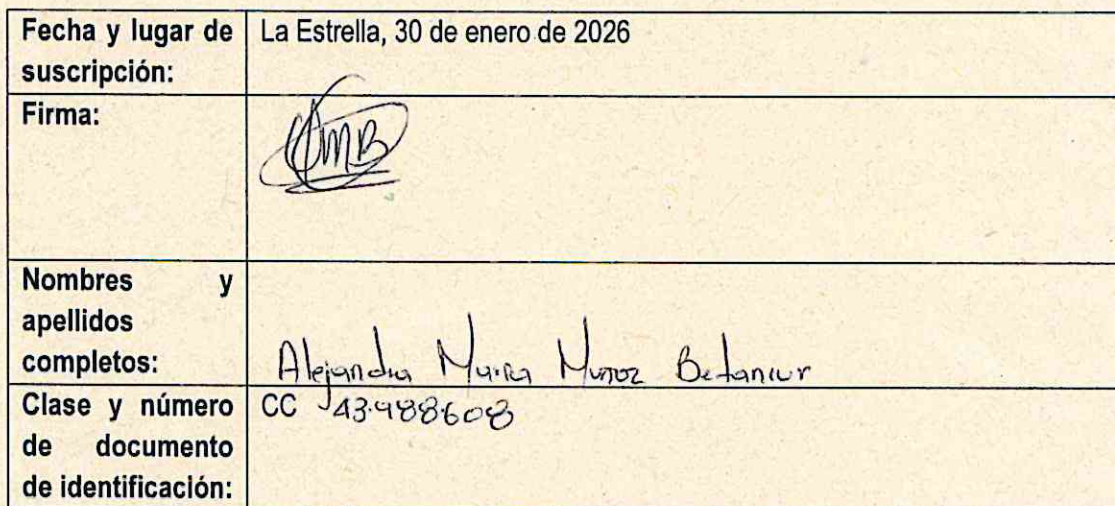 Fecha y lugar de
suscripción:
La Estrella, 30 de enero de 2026
Firma:
AMB
Nombres y
apellidos
completos:
Alejandra Maria Muñoz Betancur
Clase y número
de documento
de identificación:
CC 43.988.608